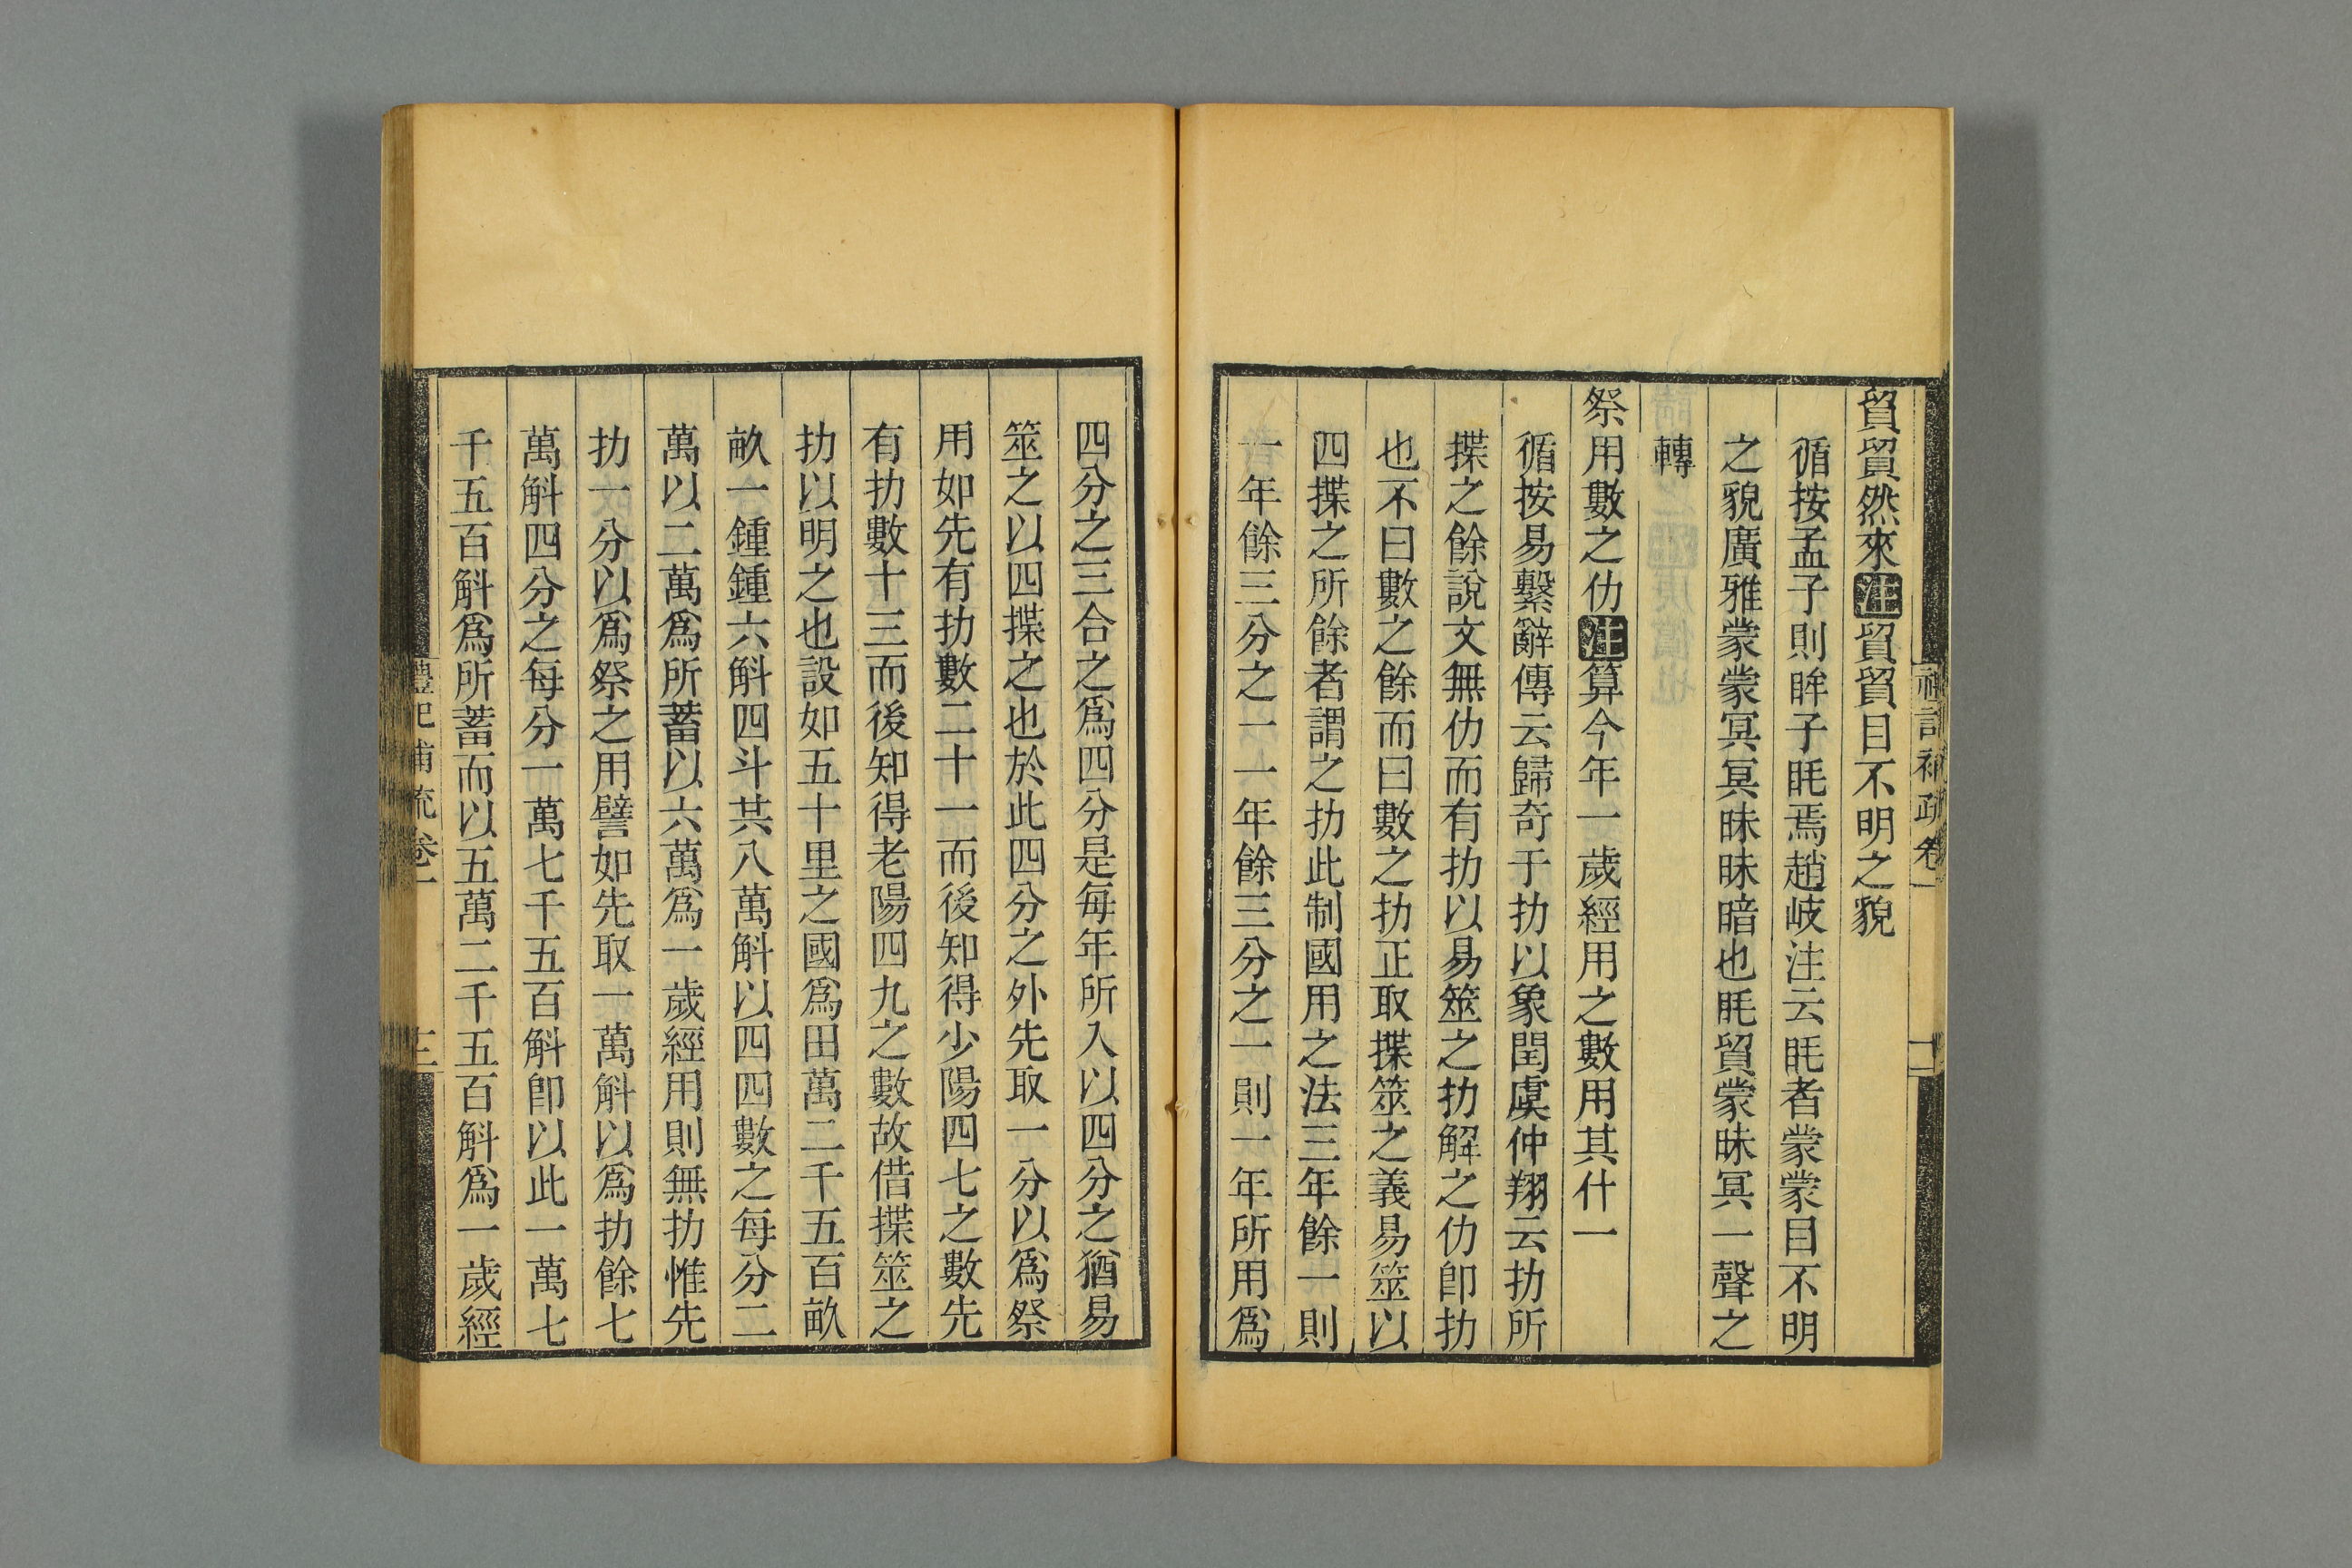 貿貿然來注貿貿目不明之貌
循按孟子則眸子眊焉趙岐注云眊者蒙蒙目不明
之貌廣雅蒙蒙冥冥昧昧暗也眊貿蒙昧冥一聲之
轉
祭用數之仂注算今年一歲經用之數用其什一
循按易繫辭傳云歸奇于扐以象閏虞仲翔云扐所
揲之餘說文無仂而有扐以易筮之扐解之仂卽扐
也不曰數之餘而曰數之扐正取揲筮之義易筮以
四揲之所餘者謂之扐此制國用之法三年餘一則
一年餘三分之一一年餘三分之一則一年所用爲
四分之三合之爲四分是每年所入以四分之猶易
筮之以四揲之也於此四分之外先取一分以爲祭
用如先有扐數二十一而後知得少陽四七之數先
有扐數十三而後知得老陽四九之數故借揲筮之
扐以明之也設如五十里之國爲田萬二千五百畝
畝一鍾鍾六斛四斗共八萬斛以四四數之每分二
萬以二萬爲所蓄以六萬爲一歲經用則無扐惟先
扐一分以爲祭之用譬如先取一萬斛以爲扐餘七
萬斛四分之每分一萬七千五百斛卽以此一萬七
千五百斛爲所蓄而以五萬二千五百斛爲一歲經
禮記補疏卷一